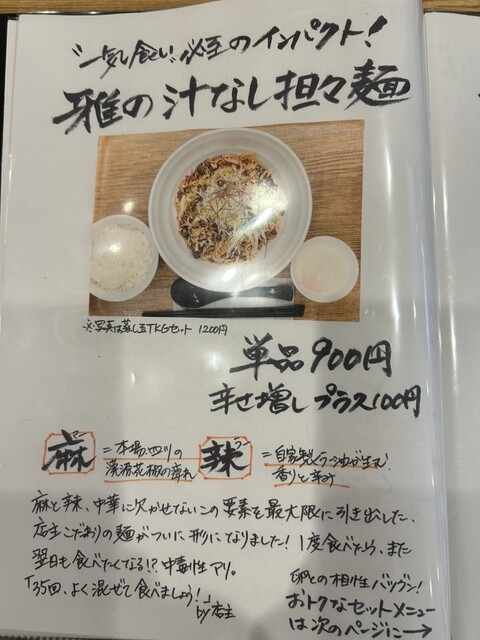 "一気食い"必至のインパクト!
雅の汁なし担々麺
※写真は蒸し玉TKGセット 1200円
単品900円
辛さ増しプラス100円
マー
麻
=本場四川の
漢源花椒の痺れ
ラー
辣
=自家製ラー油が生む
香りと辛み
麻と辣、中華に欠かせないこの要素を最大限に引き出した、
店主こだわりの麺がついに形になりました!1度食べたら、また
翌日も食べたくなる!?中毒性アリ。
「35回、よく混ぜて食べましょう!」
by店主
卵との相性バツグン!
おトクなセットメニュー
は次のページに→